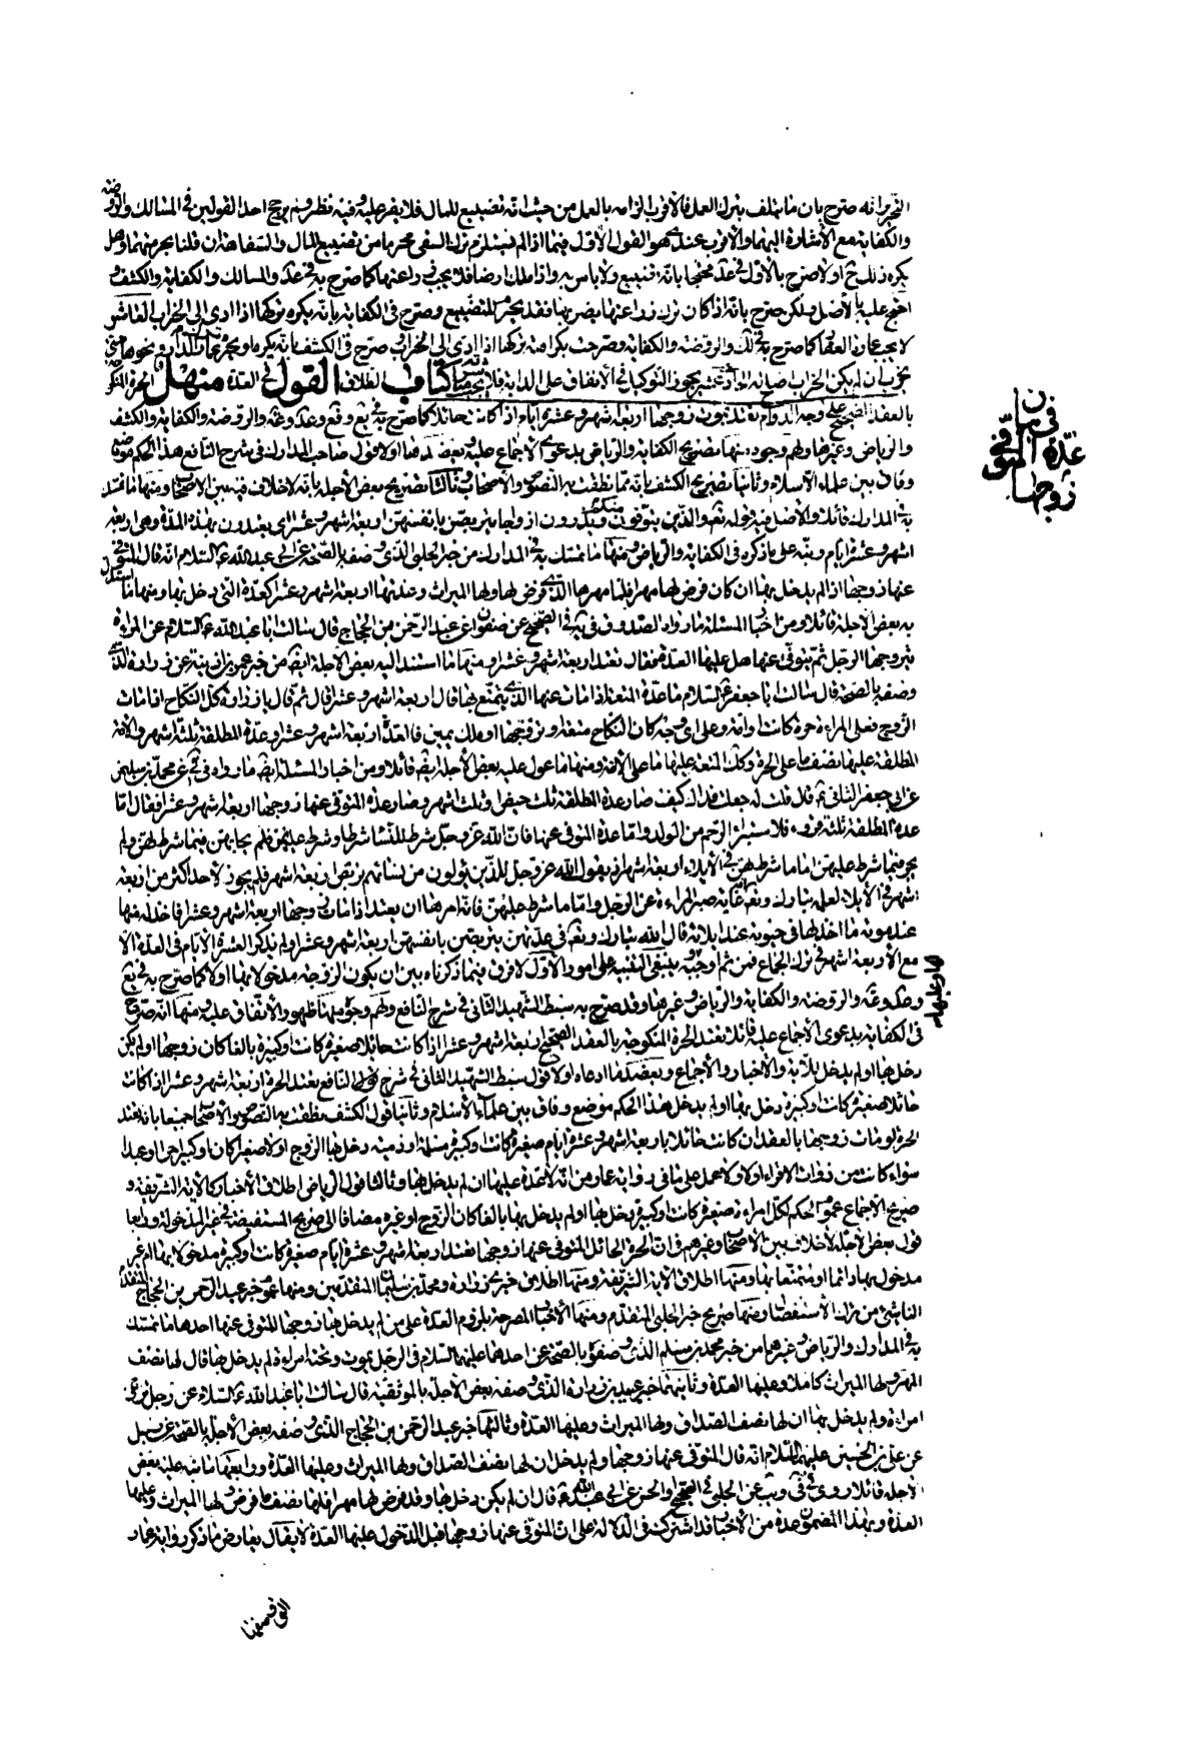 التحرير انه صرح بان ما يتلف بترك العمل فالاقرب الزامه بالعمل من حيث انه تضييع للمال فلا يقر عليه وفيه نظر ولم يرجح احد القولين فى المسالك والروضة
والكفاية مع الأشارة اليهما والأقرب عندى هو القول الأول فيما اذا لم يستلزم ترك السقى محرما من تضييع المال والسفاهة ان قلنا بحرمتهما وهل
يكره ذلك ح او لا صرح بالأول فى عد محتجا بانه تضييع ولا باس به واذا ملك ارضا فلا يجب زراعتها كما صرح به فى عد والمسالك والكفاية والكشف و
احتج عليه بالأصل ولكن صرح بانه اذا كان ترك زراعتها يضر بها فقد يحرم للتضييع وصرح فى الكفاية بانه يكره تركها اذا ادى الى الخراب العاشر
لا يجب عمارة العقار كما صرح به فى لك والروضة والكفاية وصرحت بكراهة تركها اذا ادى الى الخراب وصرح فى الكشف بانه يكره او يحرم
كتاب الطلاق القول فى العدة منهل الحرة المنكوحة
بالعقد الصحيح على وجه الدوام تعتد بموت زوجها اربعة اشهر وعشرة ايام اذا كانت حائلا كما صرح به فى يع وفع وعد وغيه والروضة والكفاية والكشف
والرياض وغيرها ولهم وجوه منها تصريح الكفاية والرياض بدعوى الأجماع عليه ويعضدهما اولا قول صاحب المدارك فى شرح النافع هذا الحكم موضع
وفاق بين علماء الأسلام وثانيا تصريح الكشف بانه مما نطقت به النصوص والأصحاب وثالثا تصريح بعض الأجلة بانه لا خلاف فيه بين الأصحاب ومنها ما تمسك
به فى المدارك قائلا والأصل فيه قوله تعالى والذين يتوفون منكم ويذرون ازواجا يتربصن بانفسهن اربعة اشهر وعشرا اى يعتدون بهذه المدة وهى اربعة
اشهر وعشرة ايام ونبه على ما ذكره فى الكفاية والرياض ومنها ما تمسك به فى المدارك من خبر الحلبى الذى وصفه بالصحة عن ابى عبد الله عليه السلام انه قال المتوفى
عنها زوجها اذا لم يدخل بها ان كان فرض لها مهرا فلها مهرها الذى فرض لها ولها الميراث وعدتها اربعة اشهر وعشرا كعدة التى دخل بها ومنها ما استدل
به بعض الأجلة قائلا ومن اخبار المسئلة ما رواه الصدوق فى يه فى الصحيح عن صفوان عن عبد الرحمن بن الحجاج قال سالت ابا عبد الله عليه السلام عن المراة
يتزوجها الرجل ثم يتوفى عنها هل عليها العدة فقال تعتد اربعة اشهر وعشرا ومنها ما استند اليه بعض الأجلة ايضا من خبر عمر بن اذينة عن زرارة الذى
وصفه بالصحة قال سالت ابا جعفر عليه السلام ما عدة المتعة اذا مات عنها الذى يتمتع بها قال اربعة اشهر وعشرا قال ثم قال يا زرارة كل النكاح اذا مات
الزوج فعلى المراة حرة كانت او امة وعلى اى وجه كان النكاح متعة او تزويجها او ملك يمين فالعدة اربعة اشهر وعشرا وعدة المطلقة ثلثة اشهر والأمة
المطلقة عليها نصف ما على الحرة وكذلك المتعة عليها ما على الأمة ومنها ما عول عليه بعض الأجلة ايضا قائلا ومن اخبار المسئلة ايضا ما رواه فى فى عن محمد بن سليمن
عن ابى جعفر الثانى ع قال قلت له جعلت فداك كيف صار عدة المطلقة ثلث حيض او ثلث اشهر وصار عدة المتوفى عنها زوجها اربعة اشهر وعشرا فقال اما
عدة المطلقة ثلثة قروء فلاستبراء الرحم من الولد واما عدة المتوفى عنها فان الله عز وجل شرط للنساء شرطا وشرط عليهن فلم يحابهن فيما شرط لهن ولم
يجر فيما شرط عليهن اما ما شرط لهن فى الأيلاء اربعة اشهر اذ يقول الله عز وجل للذين يؤلون من نسائهم تربص اربعة اشهر فلم يجوز لأحد اكثر من اربعة
اشهر فى الأيلاء لعلمه تبارك وتعالى انه غاية صبر المراءة عن الرجل واما ما شرط عليهن فانه امرها ان يعتد اذا مات زوجها اربعة اشهر وعشرا فاخذ له منها
عند موته ما اخذ لها فى حيوته عند ايلائه قال الله تبارك وتعالى فى عدتهن يتربصن بانفسهن اربعة اشهر وعشرا ولم يذكر العشرة الأيام فى العدة الا
مع الأربعة اشهر فى ترك الجماع فمن ثم اوجبه وينبغى التنبيه على امور الأول لا فرق فيما ذكرناه بين ان يكون الزوجة مدخولا بها او لا كما صرح به فى يع
وعد وغيه والروضة والكفاية والرياض وغيرها وقد صرح به سبط الشهيد الثانى فى شرح النافع ولهم وجوه منها ظهور الأتفاق عليه ومنها انه صرح
فى الكفاية بدعوى الأجماع عليه قائلا تعتد الحرة المنكوحة بالعقد الصحيح اربعة اشهر وعشرا اذا كانت حائلا صغيرة كانت او كبيرة بالغا كان زوجها او لم يكن
دخل بها او لم يدخل للاية والأخبار والأجماع ويعضد ما ادعاه اولا قول سبط الشهيد الثانى فى شرح قول النافع تعتد الحرة اربعة اشهر وعشرا اذا كانت
حائلا صغيرة كانت او كبيرة دخل بها او لم يدخل هذا الحكم موضع وفاق بين علماء الأسلام وثانيا قول الكشف نطقت به النصوص والأصحاب جميعا بانه تعتد
الحرة لو مات زوجها بالعقد ان كانت حائلا باربعة اشهر وعشرة ايام صغيرة كانت او كبيرة مسلمة او ذمية دخل بها الزوج او لا صغيرا كان او كبيرا حرا او عبدا
سواء كانت من ذوات الاقراء او لا ولا عمل على ما فى رواية عمار من انه لا عدة عليها ان لم يدخل بها وثالثا قول الرياض اطلاق الأخبار كالاية الشريفة و
صريح الأجماع عموم الحكم لكل امراة صغيرة كانت او كبيرة دخل بها او لم يدخل بها بالغا كان الزوج او غيره مضافا الى صريح المستفيضة فى غير المدخولة ورابعا
قول بعض الأجلة لا خلاف بين الأصحاب وغيرهم فى ان الحرة الحائل المتوفى عنها زوجها تعتد اربعة اشهر وعشرة ايام صغيرة كانت او كبيرة مدخولا بها ام غير
مدخول بها دائما او متمتعا بها ومنها اطلاق الاية الشريفة ومنها اطلاق خبرى زرارة ومحمد بن سليمان المتقدمين ومنها عموم خبر عبد الرحمن بن الحجاج المتقدم
الناشئ من ترك الأستفصال ومنها صريح خبر الحلبى المتقدم ومنها الأخبار المصرحة بلزوم العدة على من لم يدخل بها زوجها المتوفى عنها احدها ما تمسك
به فى المدارك والرياض وغيرهما من خبر محمد بن مسلم الذى وصفوه بالصحة عن احدهما عليهما السلام فى الرجل يموت وتحته امراة لم يدخل بها قال لها نصف
المهر ولها الميراث كاملا وعليها العدة وثانيهما خبر عبيد بن زرارة الذى وصفه بعض الأجلة بالموثقية قال سالت ابا عبد الله عليه السلام عن رجل تزوج
امراة ولم يدخل بها ان لها نصف الصداق ولها الميراث وعليها العدة وثالثها خبر عبد الرحمن بن الحجاج الذى وصفه بعض الأجلة بالصحة عن رجل
عن على بن الحسين عليهما السلام انه قال المتوفى عنها زوجها ولم يدخل ان لها نصف الصداق ولها الميراث وعليها العدة ورابعها ما نبه عليه بعض
الأجلة قائلا روى فى فى ويب عن الحلبى فى الصحيح او الحسن عن ابى عبد الله ع قال ان لم يكن دخل بها وقد فرض لها مهرا فلها نصف ما فرض ولها الميراث وعليها
العدة وبهذا المضمون عدة من الأخبار قد اشتركت فى الدلالة على ان المتوفى عنها زوجها قبل الدخول عليها العدة لا يقال يعارض ما ذكر رواية عمار
فى بيان
عدة المتوفى
زوجها